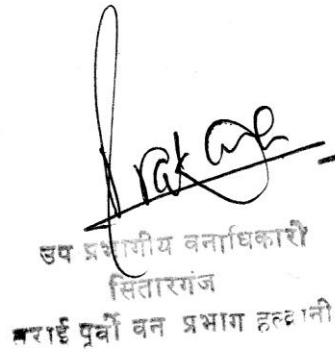 उप प्रभागीय वनाधिकारी
सितारगंज
तराई पूर्वी वन प्रभाग हल्द्वानी